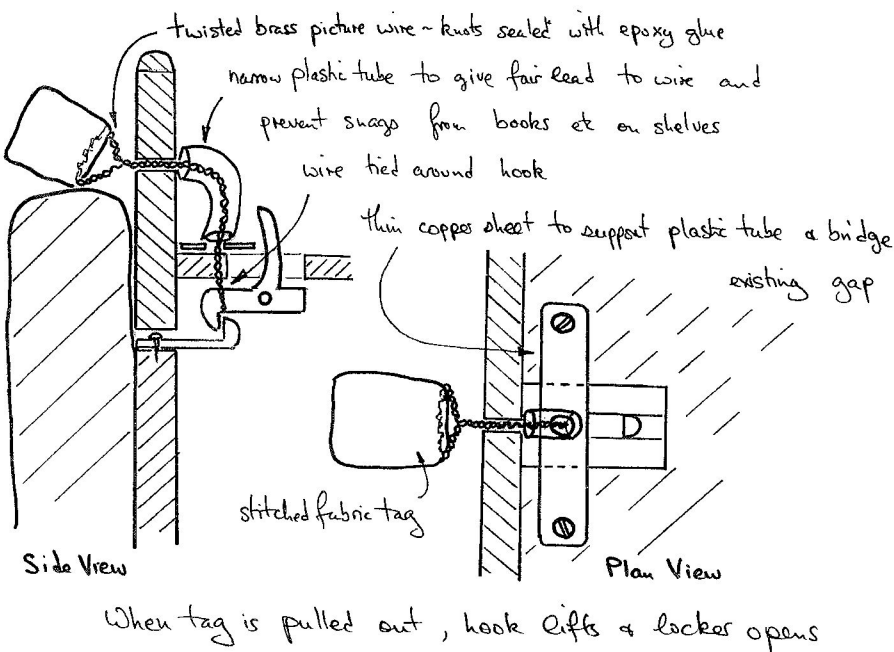 twisted brass picture wire ~ knots sealed with epoxy glue
narrow plastic tube to give fair lead to wire and
prevent snags from books etc on shelves
wire tied around hook
thin copper sheet to support plastic tube & bridge
existing gap
stitched fabric tag
Side View
Plan View
When tag is pulled out, hook lifts & locker opens